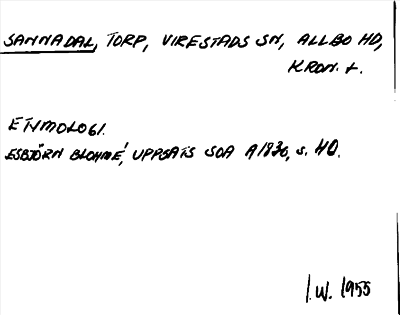 SANNADAL, TORP, VIRESTADS SN, ALLBO HD,
KRON. L.
ETYMOLOGI.
ESBJÖRN BLOHMÉ, UPPSATS SOA A1836, s. 40.
I.W. 1955